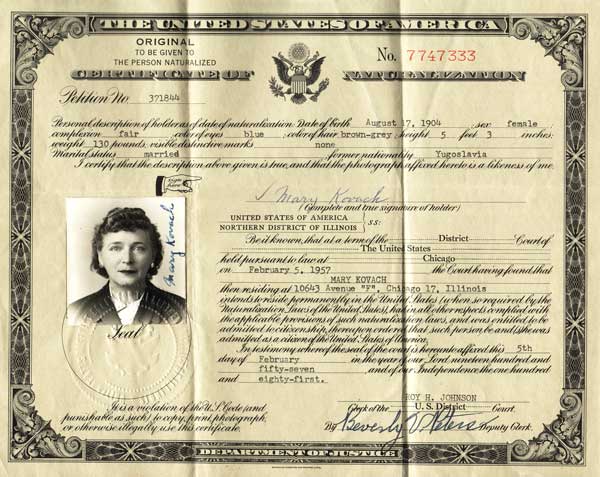 THE UNITED STATES OF AMERICA
ORIGINAL
TO BE GIVEN TO
THE PERSON NATURALIZED
No. 7747333
CERTIFICATE OF NATURALIZATION
Petition No. 371844
Personal description of holder as of date of naturalization: Date of birth August 17, 1904; sex female;
complexion fair color of eyes blue; color of hair brown-grey; height 5 feet 3 inches;
weight 130 pounds; visible distinctive marks none
Marital status married former nationality Yugoslavia
I certify that the description above given is true, and that the photograph affixed hereto is a likeness of me.
Mary Kovach
(Complete and true signature of holder)
UNITED STATES OF AMERICA
NORTHERN DISTRICT OF ILLINOIS ss:
Be it known, that at a term of the District Court of
The United States
held pursuant to law at Chicago
on February 5, 1957 the Court having found that
MARY KOVACH
then residing at 10643 Avenue "F", Chicago 17, Illinois
intends to reside permanently in the United States (when so required by the
Naturalization Laws of the United States), had in all other respects complied with
the applicable provisions of such naturalization laws, and was entitled to be
admitted to citizenship, thereupon ordered that such person be and (s)he was
admitted as a citizen of the United States of America.
In testimony whereof the seal of the court is hereunto affixed this 5th
day of February in the year of our Lord nineteen hundred and
fifty-seven and of our Independence the one hundred
and eighty-first.
Mary Kovach
Seal
It is a violation of the U.S. Code (and
punishable as such) to copy, print, photograph,
or otherwise illegally use this certificate.
ROY H. JOHNSON
Clerk of the U. S. District Court.
By Beverly V Peters Deputy Clerk.
DEPARTMENT OF JUSTICE